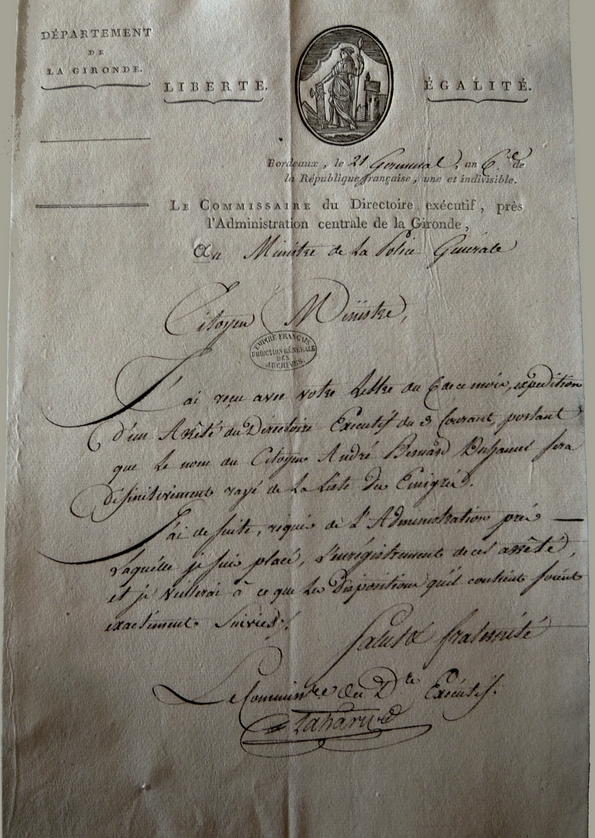 DÉPARTEMENT
DE
LA GIRONDE.
LIBERTÉ.
ÉGALITÉ.
Bordeaux, le 21 Germinal, an 6.e de
la République française, une et indivisible.
LE COMMISSAIRE du Directoire exécutif, près
l'Administration centrale de la Gironde,
Au Ministre de La Police Générale
Citoyen Ministre,
EMPIRE FRANÇAIS
DIRECTION GÉNÉRALE
DES
ARCHIVES.
J'ai reçu avec votre Lettre du 6 de ce mois, expedition
d'un Arrêté du Directoire Exécutif du 3 Courant portant
que le nom du Citoyen André Bernard Duhamel sera
définitivement rayé de La Liste des Emigrés.
J'ai de suite, requis de L'Administration près
laquelle je suis placé, L'enrégistrement de cet arrêté,
et je veillerai à ce que les Dispositions qu'il contient soient
exactement Suivies.
Salut & fraternité
Le Commissre du Dre Exécutif.
Lahary